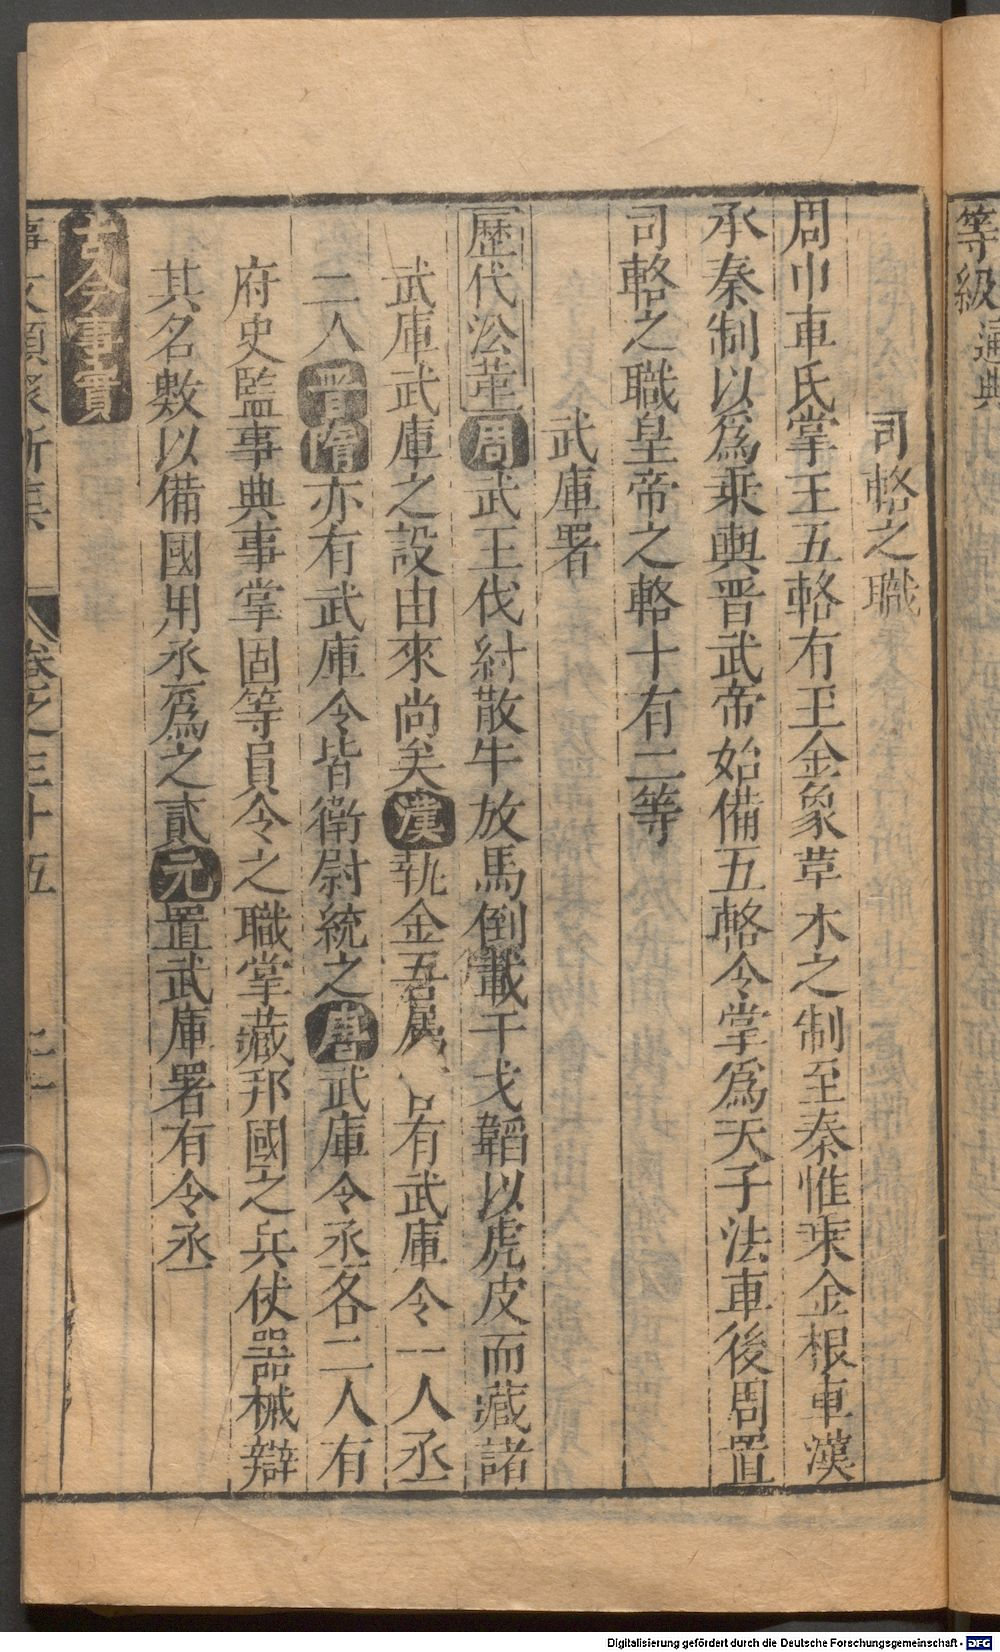 等級通典
司輅之職
周巾車氏掌王五輅有王金象草木之制至秦惟乘金根車漢
承秦制以爲乘輿晋武帝始備五輅令掌爲天子法車後周置
司輅之職皇帝之輅十有二等
武庫署
歷代沿革周武王伐紂散牛放馬倒載干戈韜以虎皮而藏諸
武庫武庫之設由來尚矣漢執金吾属有武庫令一人丞
二人晋隋亦有武庫令皆衛尉統之唐武庫令丞各二人有
府史監事典事掌固等員令之職掌藏邦國之兵仗器械辯
其名數以備國用丞爲之貳元置武庫署有令丞
古今事實
事文類聚新集 卷之三十五
Digitalisierung gefördert durch die Deutsche Forschungsgemeinschaft - DFG